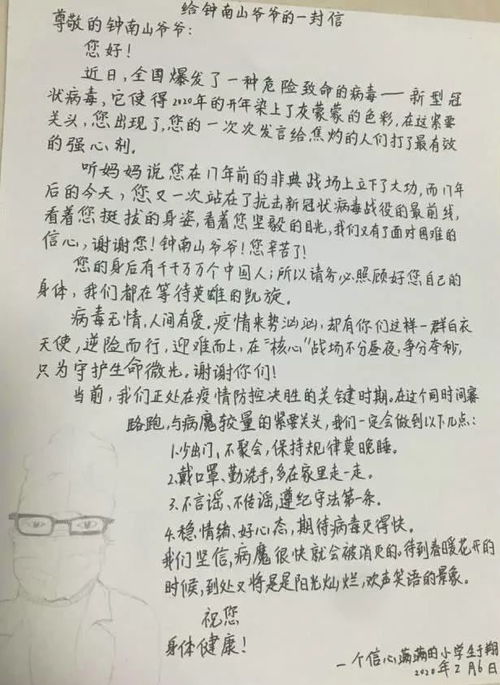 给钟南山爷爷的一封信
尊敬的钟南山爷爷:
您好!
近日,全国爆发了一种危险致命的病毒——新型冠
状病毒,它使得2020年的开年染上了灰蒙蒙的色彩,在这紧要
关头,您出现了,您的一次次发言给焦灼的人们打了最有效
的强心剂。
听妈妈说您在17年前的非典战场上立下了大功,而17年
后的今天,您又一次站在了抗击新冠状病毒战役的最前线,
看着您挺拔的身姿,看着您坚毅的目光,我们又有了面对困难的
信心,谢谢您!钟南山爷爷!您辛苦了!
您的身后有千千万万个中国人;所以请务必照顾好您自己的
身体,我们都在等待英雄的凯旋。
病毒无情,人间有爱。疫情来势汹汹,却有你们这样一群白衣
天使,逆险而行,迎难而上,在“核心”战场不分昼夜,争分夺秒,
只为守护生命微光。谢谢你们!
当前,我们正处在疫情防控决胜的关键时期。在这个同时间赛
路跑,与病魔较量的紧要关头,我们一定会做到以下几点:
1.少出门、不聚会,保持规律莫晚睡。
2.戴口罩、勤洗手,多在家里走一走。
3.不言谣、不传谣,遵纪守法第一条。
4.稳情绪、好心态,期待病毒灭得快。
我们坚信,病魔很快就会被消灭的。待到春暖花开的
时候,到处又将是是阳光灿烂,欢声笑语的景象。
祝您
身体健康!
一个信心满满的小学生于翔
2020年2月6日